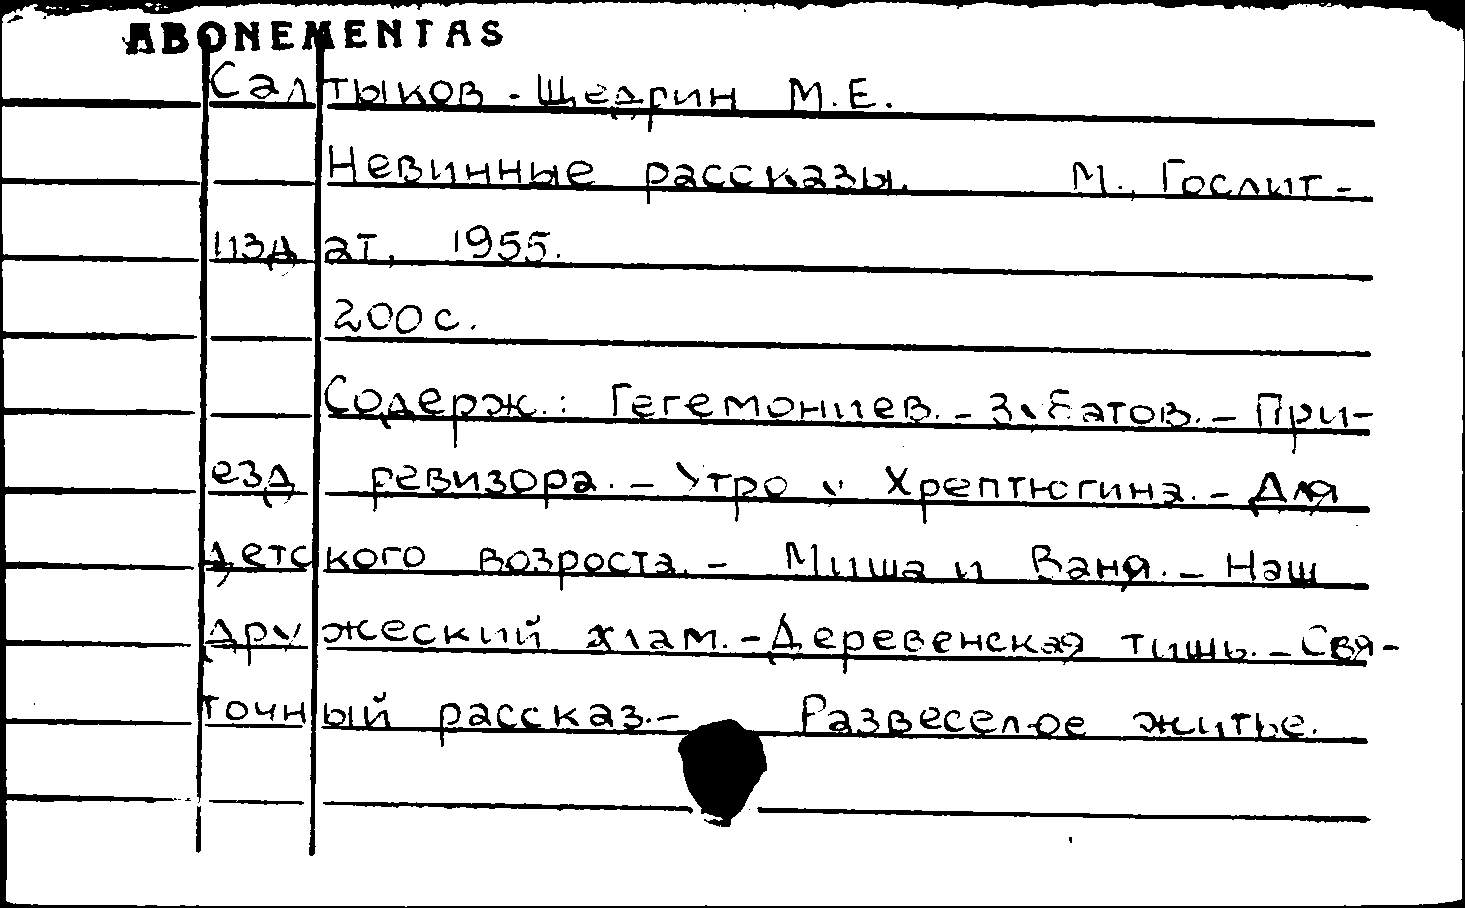 ABONEMENTAS
Салтыков-Щедрин М.Е.
Невинные рассказы. М., Гослит-
издат, 1955.
200 с.
Содерж.: Гегемониев. - Зубатов. - При-
езд ревизора. - Утро у Хрептюгина. - Для
детского возроста. - Миша и Ваня. - Наш
дружеский хлам. - Деревенская тишь. - Свя-
точный рассказ. - Развеселое житье.